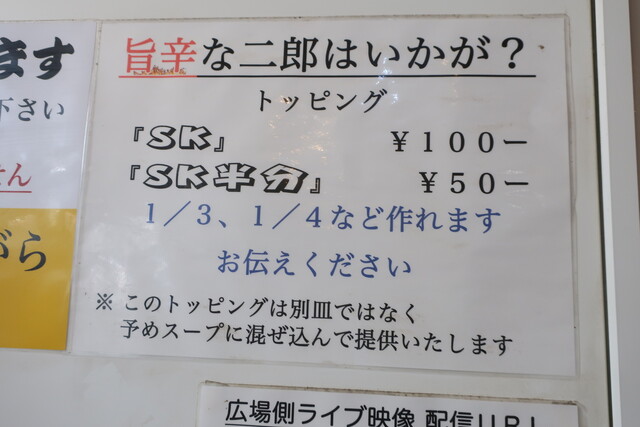 ます
下さい
せん
がら
旨辛な二郎はいかが?
トッピング
『SK』 ￥100ー
『SK半分』 ￥50ー
1/3、1/4など作れます
お伝えください
※ このトッピングは別皿ではなく
予めスープに混ぜ込んで提供いたします
広場側ライブ映像 配信URL